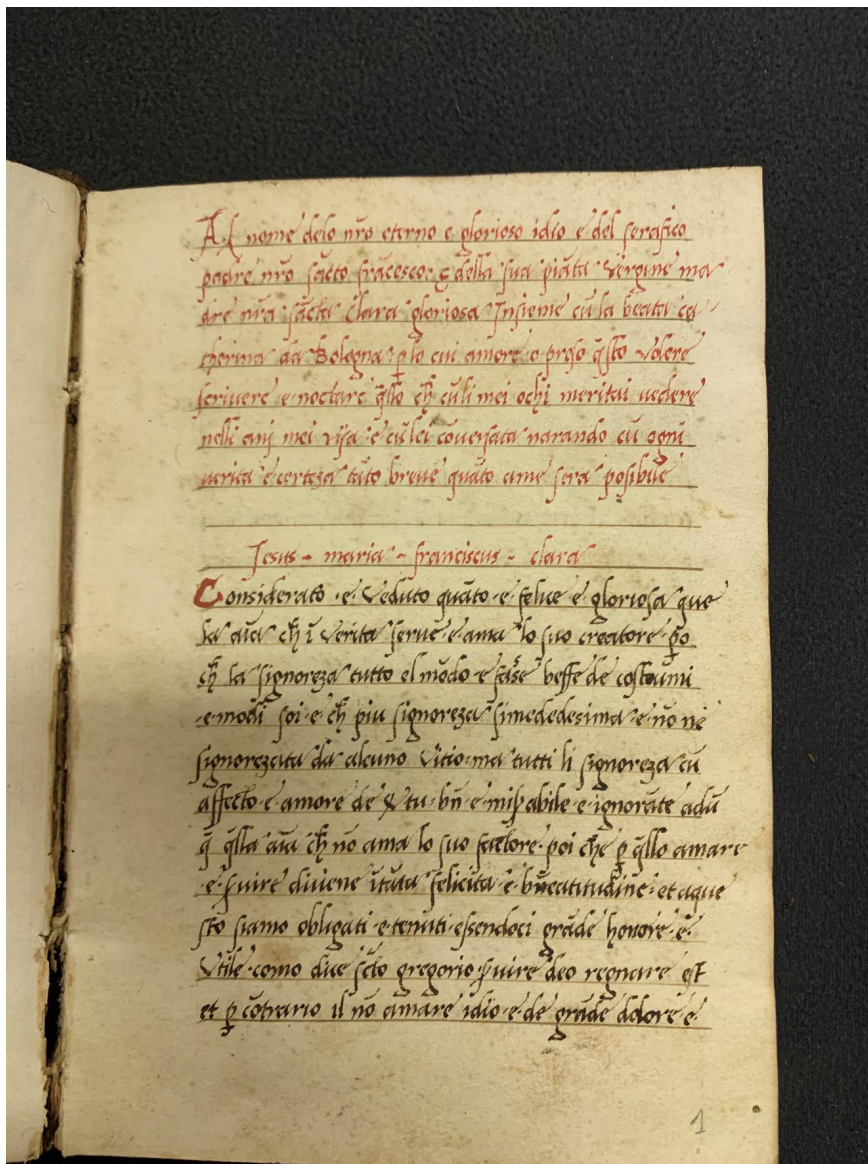 Al nome delo nr̃o eterno e glorioso idio e del serafico
padre nr̃o sãcto frãcesco· e della sua piata vergine ma
dre nr̃a sãcta Clara gloriosa Insieme cũ la beata ca
therina da Bologna p̱ lo cui amore o preso q̃sto volere
scrivere e noctare q̃llo ch̃ cũ li mei ochi meritai vedere
nelli anj mei e cũ lei cõversata narando cũ ogni
verita e certeza tãto breve quãto ame sera posibile
Jesus - maria - franciscus - clara
Considerato · e · veduto quãto · e · felice e gloriosa que
la aĩa ch̃ ĩ verita serve · e · ama lo suo creatore · p̱o
ch̃ la signoreza tutto el mõdo e fase beffe de costoumi
· e · modi soi · e ch̃ piu signoreza simededesima · e · nõ ne
signorezata da alcuno vitio · ma tutti li signoreza cũ
affecto · e · amore de tu · bñ e misabile · e · ignorãte adũ
q̃ q̃lla aĩa ch̃ nõ ama lo suo factore · poi che p̱ q̃llo amare
· e · s̃vire diviene ĩtãta felicita · e · bñeatitudine · et aque
sto siamo obligati · e · tenuti · essendoci grãde honore · e ·
Utile · como dice scto gregorio s̃vire deo regnare est
et p̱ cõtrario il nõ amare idio · e · de grãde dolore e ·
1